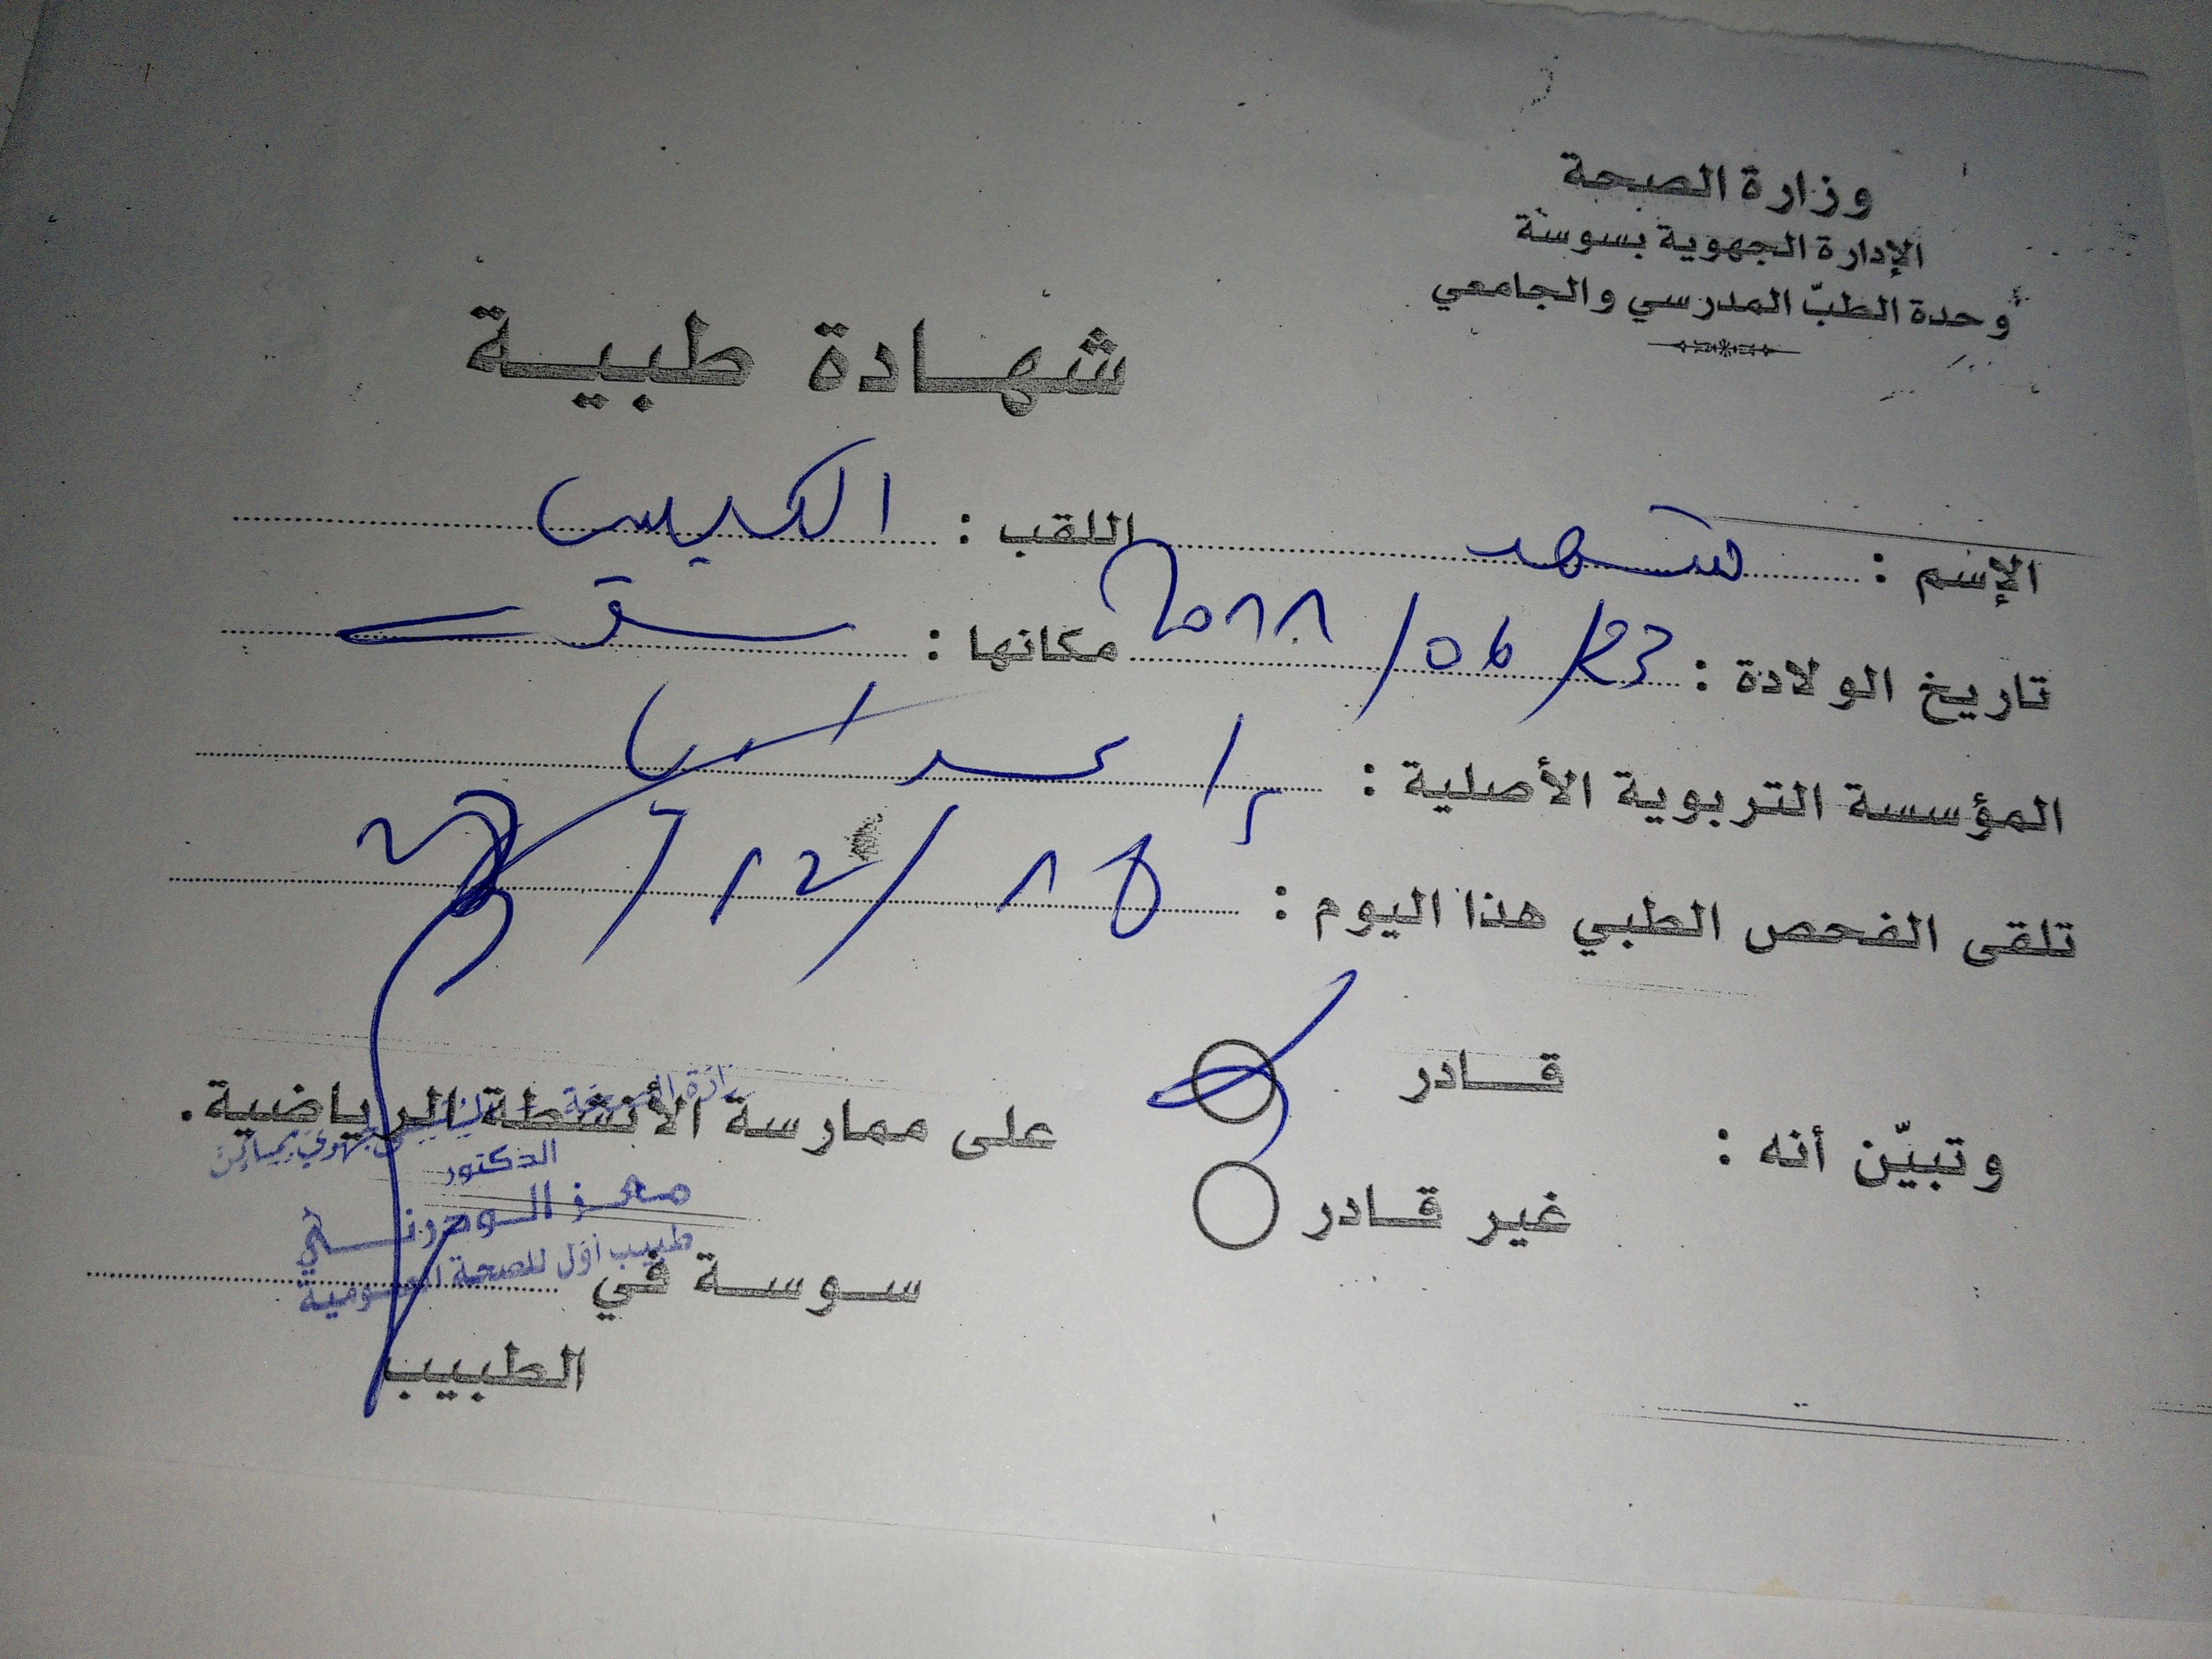 وزارة الصحة
الإدارة الجهوية بسوسة
وحدة الطبّ المدرسي والجامعي
شهادة طبية
الإسم : شهد اللقب :
تاريخ الولادة : 23/06/2011 مكانها :
المؤسسة التربوية الأصلية :
تلقى الفحص الطبي هذا اليوم : 18/12/
وتبيّن أنه :
قادر
غير قادر
على ممارسة الأنشطة الرياضية.
الدكتور
طبيب أول للصحة العمومية
سوسة في
الطبيب